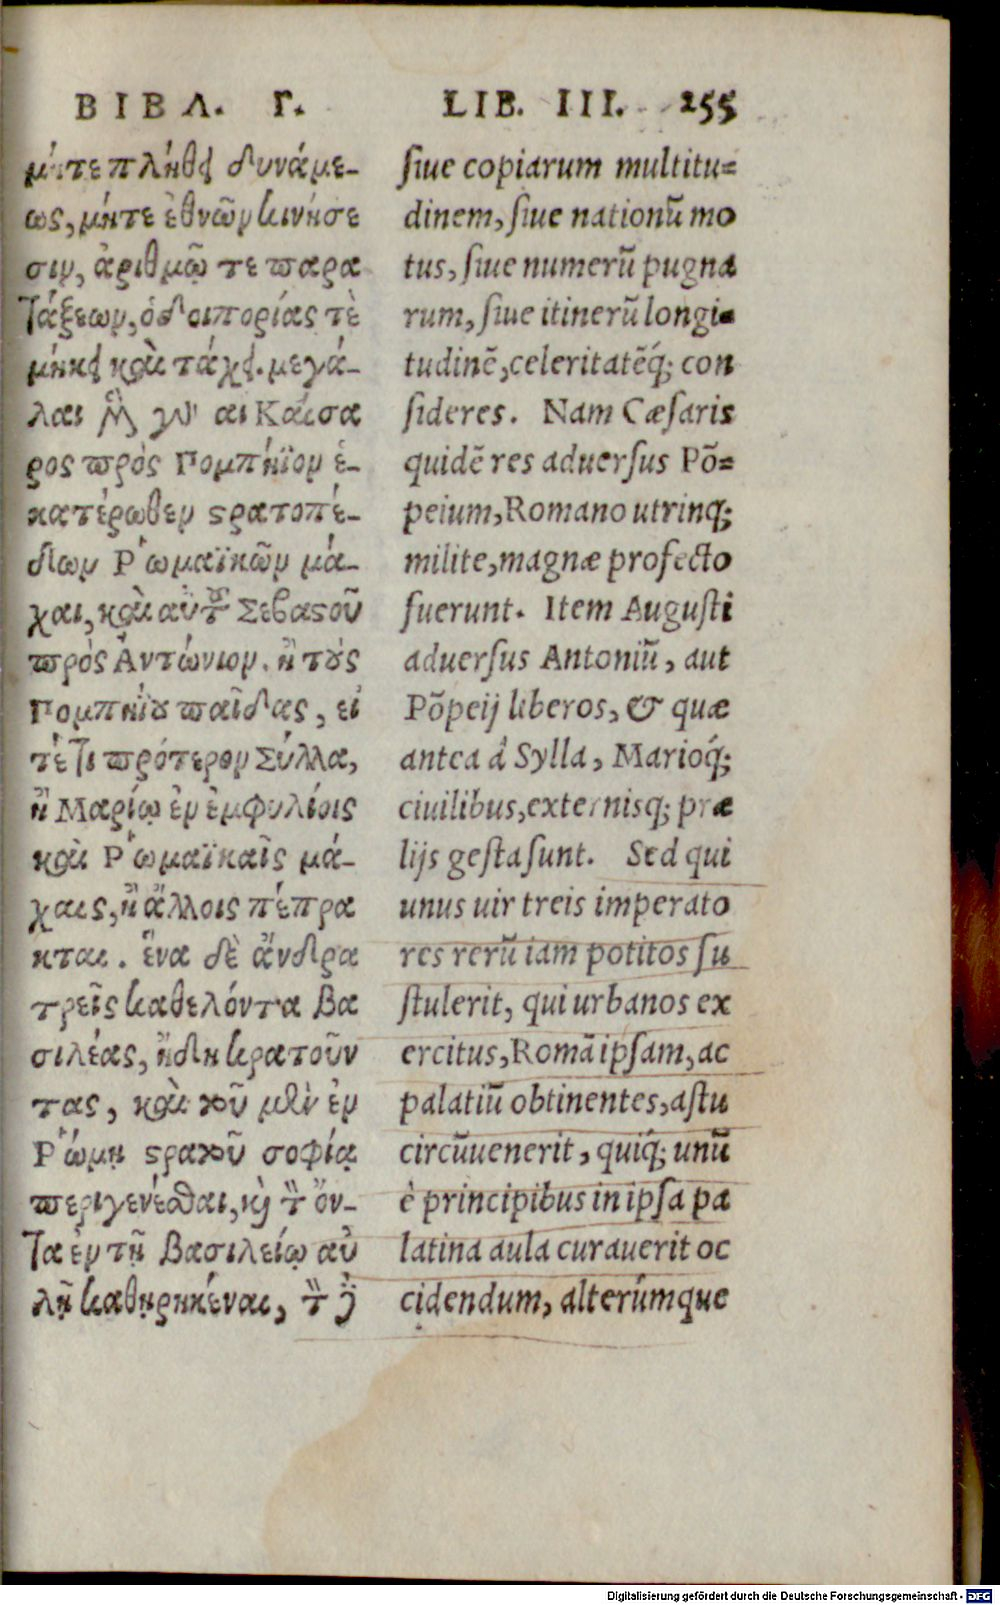 ΒΙΒΛ. Γ.
μήτε πλήθει δυνάμε-
ως, μήτε ἐθνῶν κινήσε
σιν, ἀριθμῷ τε παρα
τάξεων, ὁδοιπορίας τὲ
μήκει καὶ τάχει. μεγά-
λαι μὲν γὰρ αἱ Καίσα
ρος πρὸς Πομπήϊον ἑ-
κατέρωθεν στρατοπέ-
δων Ῥωμαϊκῶν μά-
χαι, καὶ αὖται Σεβαστοῦ
πρὸς Ἀντώνιον. ἢ τοὺς
Πομπηίου παῖδας, εἰ
τέ τι πρότερον Σύλλᾳ,
ἢ Μαρίῳ ἐν ἐμφυλίοις
καὶ Ῥωμαϊκαῖς μά-
χαις, ἢ ἄλλοις πέπρα
κται. ἕνα δὲ ἄνδρα
τρεῖς καθελόντα βα
σιλέας, ἤδη κρατοῦν
τας, καὶ τοῦ μὲν ἐν
Ῥώμῃ στρατοῦ σοφίᾳ
περιγενέσθαι, καὶ τὸν ὄν-
τα ἐν τῇ βασιλείῳ αὐ
λῇ καθῃρηκέναι, τὸν
LIB. III. 255
siue copiarum multitu=
dinem, siue nationũ mo
tus, siue numerũ pugna
rum, siue itinerũ longi=
tudinẽ, celeritatẽq́; con
sideres. Nam Cæsaris
quidẽ res aduersus Põ=
peium, Romano utrinq;
milite, magnæ profecto
fuerunt. Item Augusti
aduersus Antoniũ, aut
Põpeij liberos, & quæ
antea à Sylla, Marioq́;
ciuilibus, externisq; præ
lijs gesta sunt. Sed qui
unus uir treis imperato
res rerũ iam potitos su
stulerit, qui urbanos ex
ercitus, Romã ipsam, ac
palatiũ obtinentes, astu
circũuenerit, quiq́; unũ
è principibus in ipsa pa
latina aula curauerit oc
cidendum, alterúmque
Digitalisierung gefördert durch die Deutsche Forschungsgemeinschaft - DFG